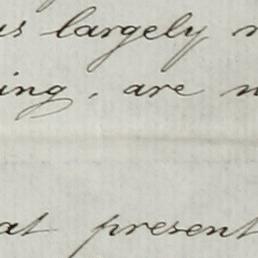 us largely
ing, are
at present